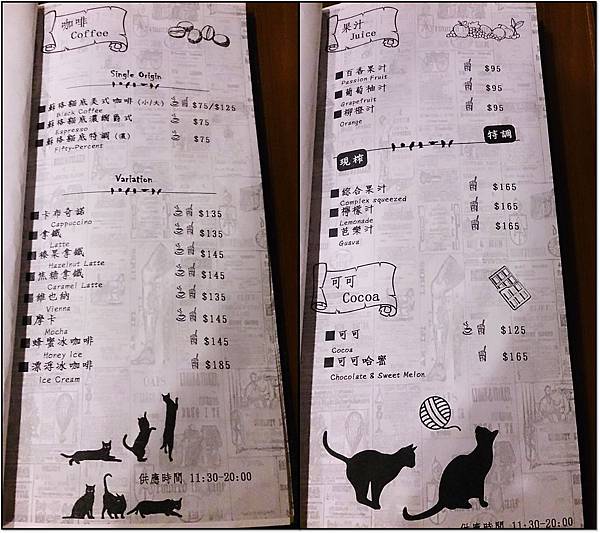 咖啡
Coffee
Single Origin
蘇格貓底美式咖啡 (小/大) $75/$125
Black Coffee
蘇格貓底濃縮爵式 $75
Espresso
蘇格貓底特調 (濃) $75
Fifty-Percent
Variation
卡布奇諾 $135
Cappuccino
拿鐵 $135
Latte
榛果拿鐵 $145
Hazelnut Latte
焦糖拿鐵 $145
Caramel Latte
維也納 $135
Vienna
摩卡 $145
Mocha
蜂蜜冰咖啡 $145
Honey Ice
漂浮冰咖啡 $185
Ice Cream
供應時間 11:30-20:00
果汁
Juice
百香果汁 $95
Passion Fruit
葡萄柚汁 $95
Grapefruit
柳橙汁 $95
Orange
特調
現榨
綜合果汁 $165
Complex squeezed
檸檬汁 $165
Lemonade
芭樂汁 $165
Guava
可可
Cocoa
可可 $125
Cocoa
可可哈蜜 $165
Chocolate & Sweet Melon
供應時間 11:30-20:00